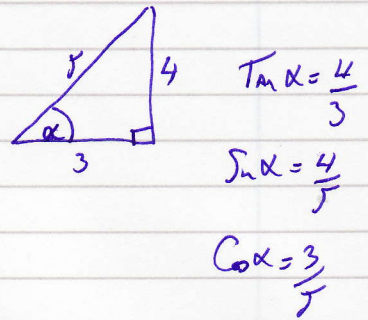 5
4
α
3
Tan α = 4/3
Sin α = 4/5
Cos α = 3/5